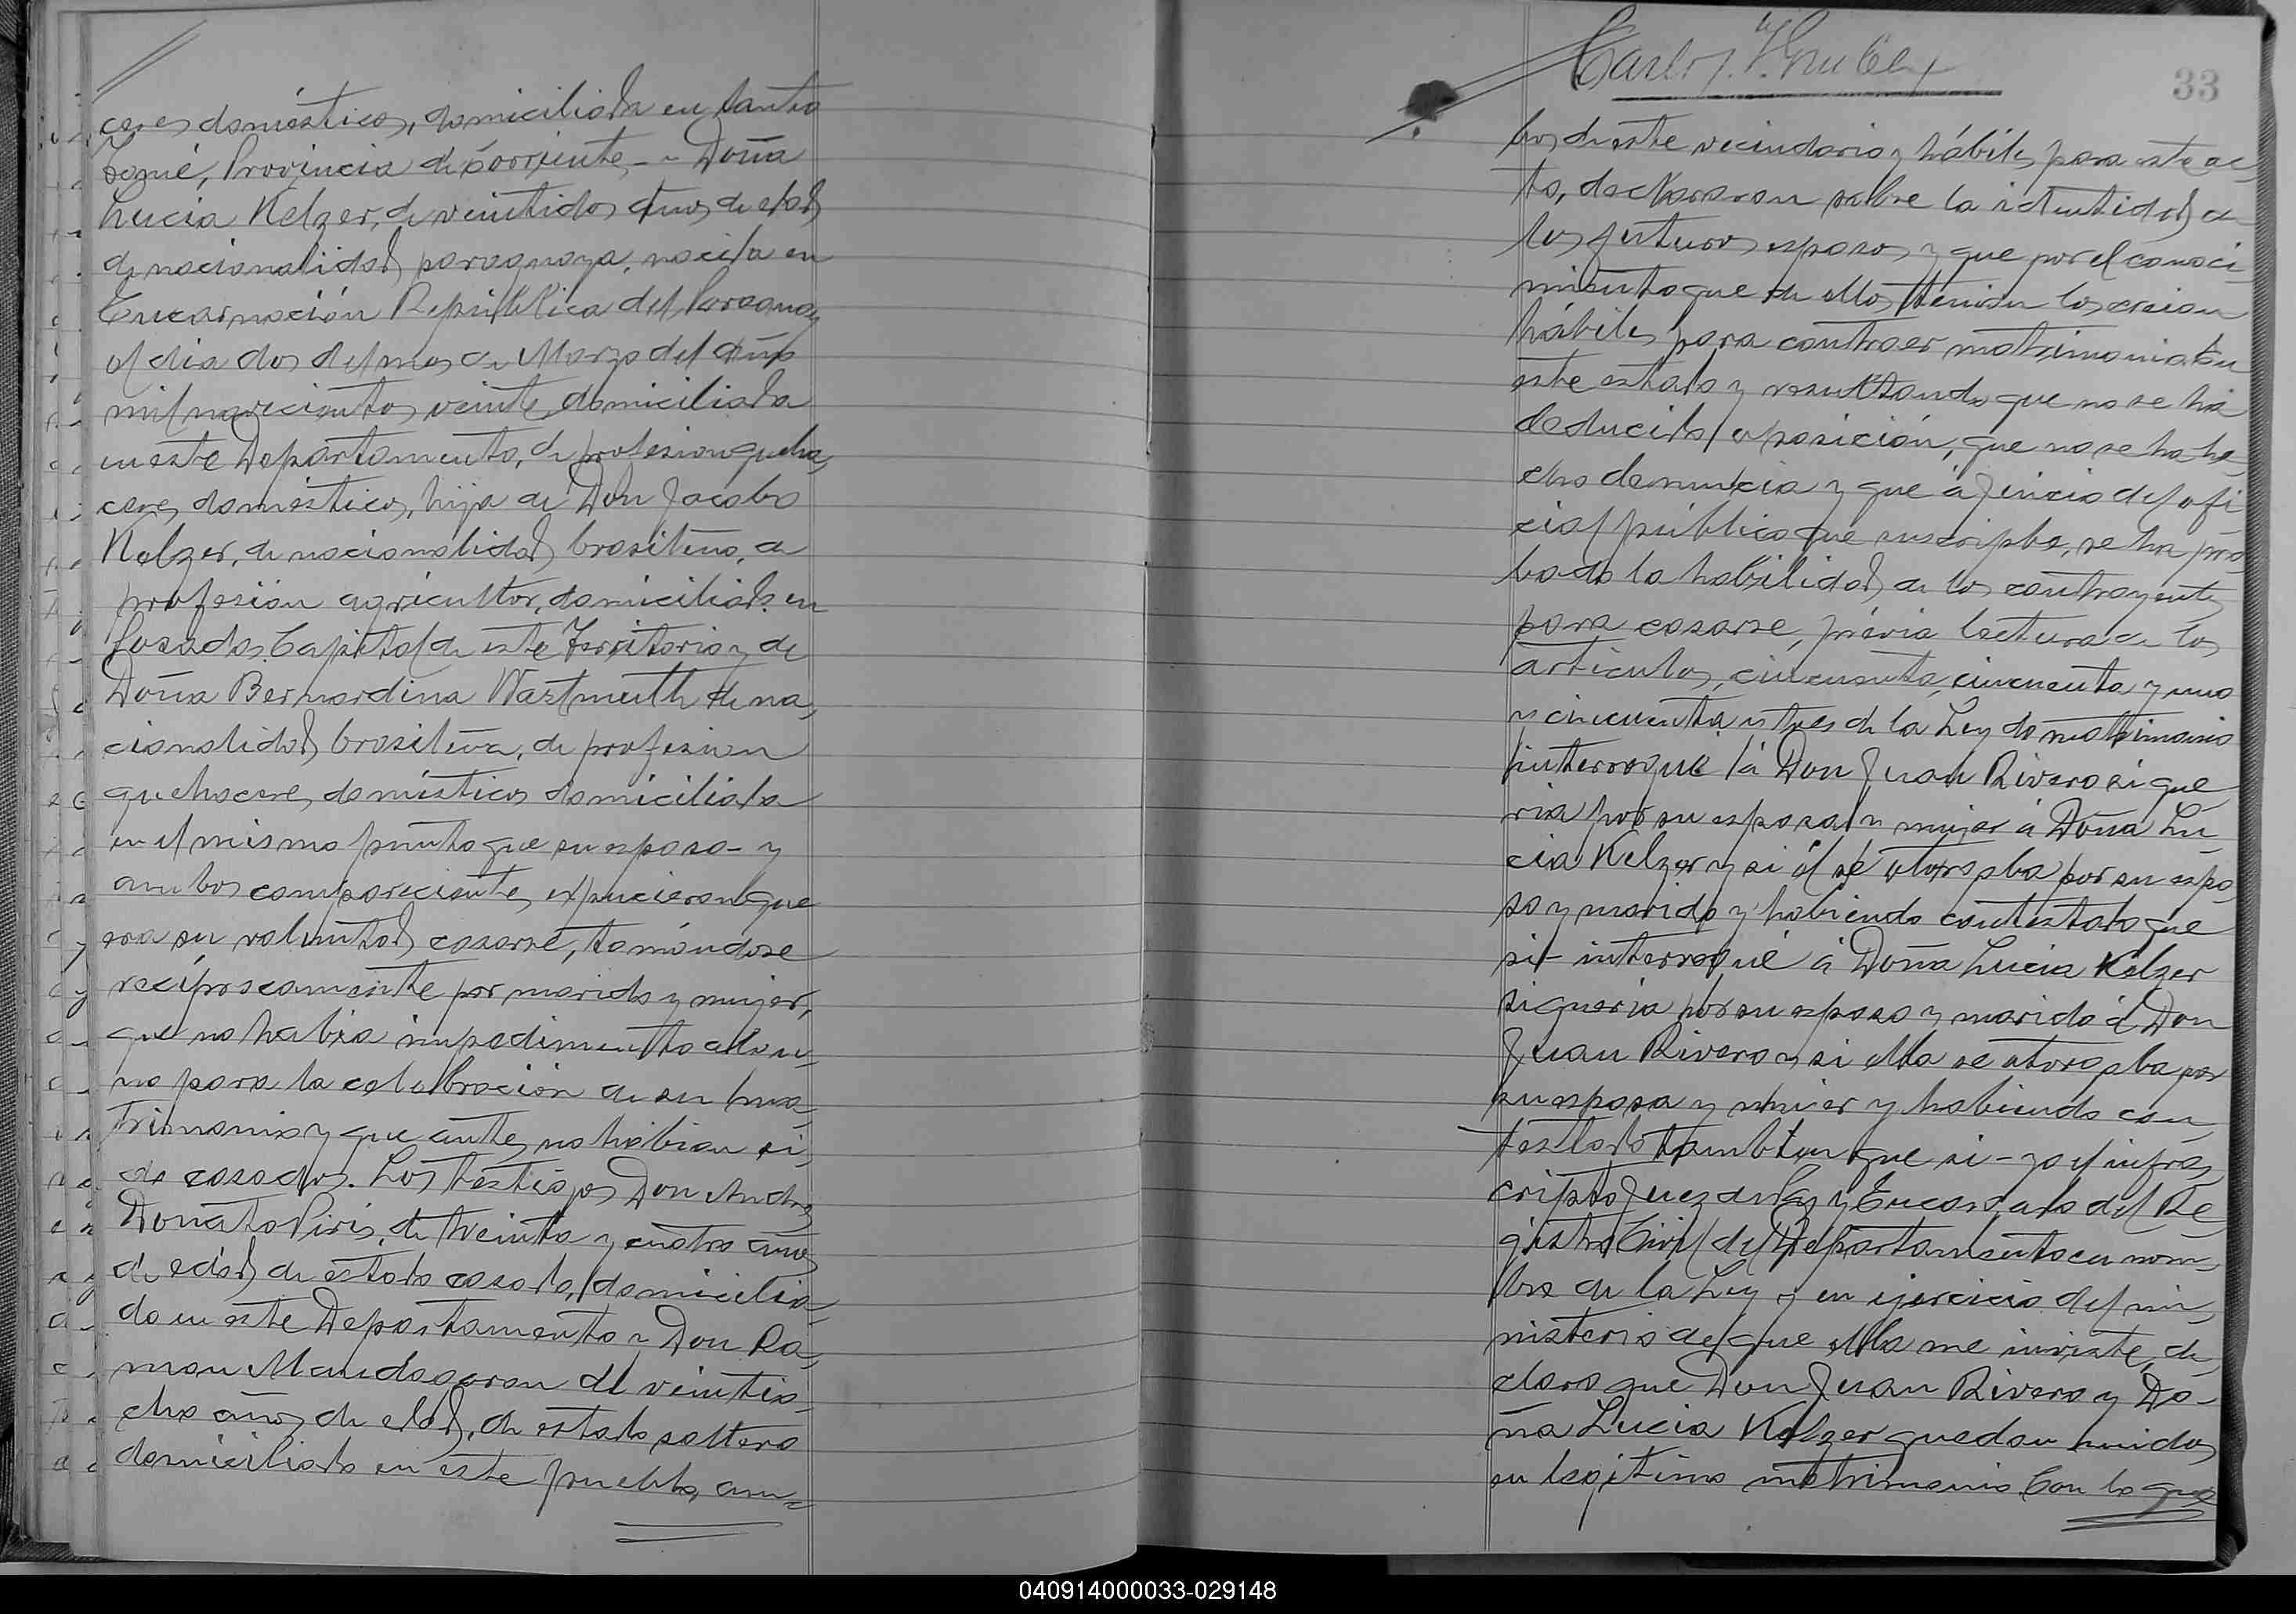 ceres domésticos, domiciliada en Santo
Tomé, Provincia de Corrientes - y Doña
Lucia Kelzer, de veintidos años de edad
de nacionalidad paraguaya, nacida en
Encarnación República del Paraguay
el dia dos del mes de Marzo del año
mil novecientos veinte, domiciliada
en este Departamento, de profesion queha,
ceres domésticos, hija de Don Jacobo
Kelzer, de nacionalidad brasileña, de
profesión agricultor, domiciliado en
Posadas, Capital de este Territorio y de
Doña Bernardina Wastmuth de na,
cionalidad brasileña, de profesion
quehaceres domésticos domiciliada
en el mismo punto que su esposo - y
ambos comparecientes expucieron que
era su voluntad casarse, tomándose
recíprocamente por marido y mujer,
que no habia impedimento algu-
no para la celebración de su ma-
trimonio y que antes no habian si,
do casados. Los testigos Don Andres
Donato Piris, de treinta y cuatro años
de edad de estado casado, domicilia-
do en este Departamento y Don Ra,
mon Mandagaran de veintio-
cho años de edad, de estado soltero
domiciliado en este pueblo, am-
Carlos
33
bos de este vecindario y hábiles para este ac,
to, declararon sobre la identidad de
los futuros esposos y que por el conoci-
miento que de ellos tenian los creian
hábiles para contraer matrimonio En
este estado y resultando que no se ha
deducido oposición, que no se ha he,
cho denuncia y que á juicio del ofi-
cial público que suscribe, se ha pro-
bado la habilidad de los contrayentes
para casarse, prévia lectura de los
artículos, cincuenta, cincuenta y uno
y cincuenta y tres de la Ley de matrimonio
interrogué á Don Juan Rivero si que
ria por su esposa y mujer á Doña Lu-
cia Kelzer y si él se otorgaba por su espo-
so y marido y habiendo contestado que
si - interrogué á Doña Lucia Kelzer
si queria por su esposo y marido á Don
Juan Rivero y si ella se otorgaba por
su esposa y mujer y habiendo con,
testado tambien que si - yo el infras,
cripto Juez de Paz y Encargado del Re
gistro Civil del Departamento en nom-
bre de la Ley y en ejercicio del mi,
nisterio del que ella me inviste, de,
claro que Don Juan Rivero y Do-
ña Lucia Kelzer quedan unidos
en legítimo matrimonio Con lo que
040914000033-029148